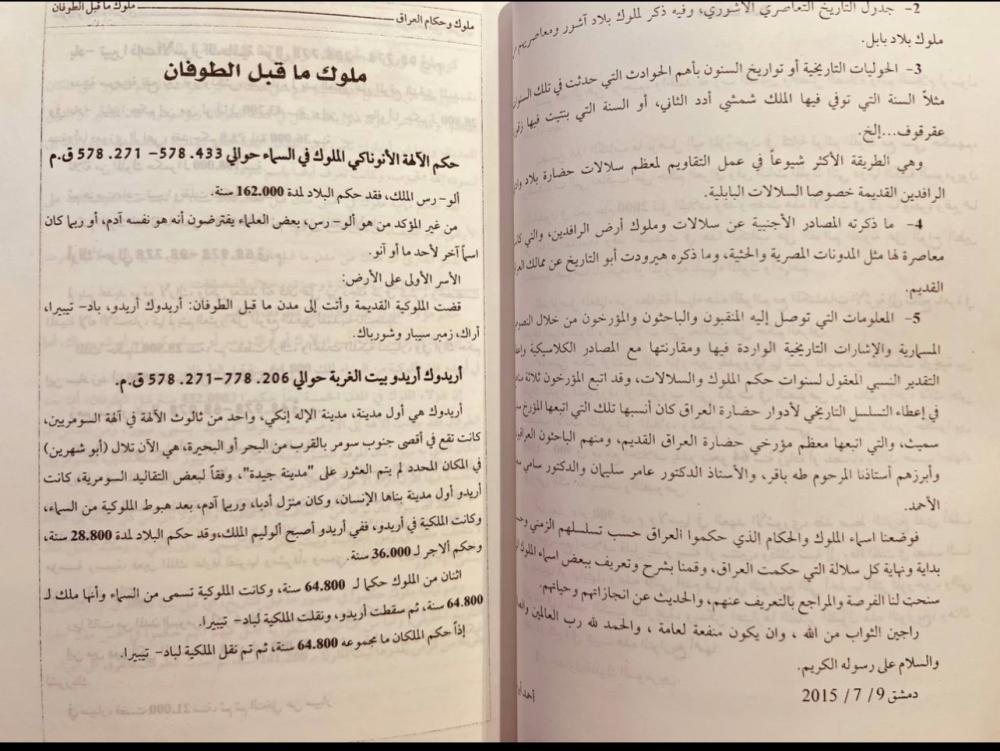 2- جدول التاريخ التعاصري الآشوري، وفيه ذكر لملوك بلاد آشور ومعاصريهم
ملوك بلاد بابل.
3- الحوليات التاريخية أو تواريخ السنون بأهم الحوادث التي حدثت في تلك السنوات
مثلاً السنة التي توفي فيها الملك شمشي أدد الثاني، أو السنة التي بنتيت فيها
عقرقوف...إلخ.
وهي الطريقة الأكثر شيوعاً في عمل التقاويم لمعظم سلالات حضارة بلاد
الرافدين القديمة خصوصا السلالات البابلية.
4- ما ذكرته المصادر الأجنبية عن سلالات وملوك أرض الرافدين، والتي
معاصرة لها مثل المدونات المصرية والحثية، وما ذكره هيرودت أبو التاريخ عن ممالك
القديم.
5- المعلومات التي توصل إليه المنقبون والباحثون والمؤرخون من خلال
المسمارية والإشارات التاريخية الواردة فيها ومقارنتها مع المصادر الكلاسيكية
التقدير النسبي المعقول لسنوات حكم الملوك والسلالات، وقد اتبع المؤرخون ثلاثة
في إعطاء التسلسل التاريخي لأدوار حضارة العراق كان أنسبها تلك التي اتبعها المؤرخ
سميث، والتي اتبعها معظم مؤرخي حضارة العراق القديم، ومنهم الباحثون
وأبرزهم أستاذنا المرحوم طه باقر، والأستاذ الدكتور عامر سليمان والدكتور سامي
الأحمد.
فوضعنا اسماء الملوك والحكام الذي حكموا العراق حسب تسلسلهم الزمني
بداية ونهاية كل سلالة التي حكمت العراق، وقمنا بشرح وتعريف ببعض اسماء الملوك
سنحت لنا الفرصة والمراجع بالتعريف عنهم، والحديث عن انجازاتهم وحياتهم.
راجين الثواب من الله ، وان يكون منفعة لعامة ، والحمد لله رب العالمين
والسلام على رسوله الكريم.
دمشق 9/ 7/ 2015
ملوك وحكام العراق
ملوك ما قبل الطوفان
ملوك ما قبل الطوفان
حكم الآلهة الأنوناكي الملوك في السماء حوالي 433. 578– 271. 578 ق.م
ألو- رس الملك، فقد حكم البلاد لمدة 162.000 سنة.
من غير المؤكد من هو ألو- رس، بعض العلماء يفترضون أنه هو نفسه آدم، أو ربما كان
اسماً آخر لأحد ما أو آنو.
الأسر الأولى على الأرض:
قضت الملوكية القديمة وأتت إلى مدن ما قبل الطوفان: أريدوك أريدو، باد- تيبيرا،
أراك، زمبر سيبار وشورباك.
أريدوك أريدو بيت الغربة حوالي 206. 778–271. 578 ق.م.
أريدوك هي أول مدينة، مدينة الإله إنكي، واحد من ثالوث الآلهة في آلهة السومريين،
كانت تقع في أقصى جنوب سومر بالقرب من البحر أو البحيرة، هي الآن تلال (أبو شهرين)
في المكان المحدد لم يتم العثور على "مدينة جيدة"، وفقاً لبعض التقاليد السومرية، كانت
أريدو أول مدينة بناها الإنسان، وكان منزل أدبا، وربما آدم، بعد هبوط الملوكية من السماء،
وكانت الملكية في أريدو، ففي أريدو أصبح ألوليم الملك، وقد حكم البلاد لمدة 28.800 سنة،
وحكم ألاجر لـ 36.000 سنة.
اثنان من الملوك حكما لـ 64.800 سنة، وكانت الملوكية تسمى من السماء وأنها ملك لـ
64.800 سنة، ثم سقطت أريدو، ونقلت الملكية لباد- تيبيرا.
إذاً حكم الملكان ما مجموعه 64.800 سنة، ثم تم نقل الملكية لباد- تيبيرا.